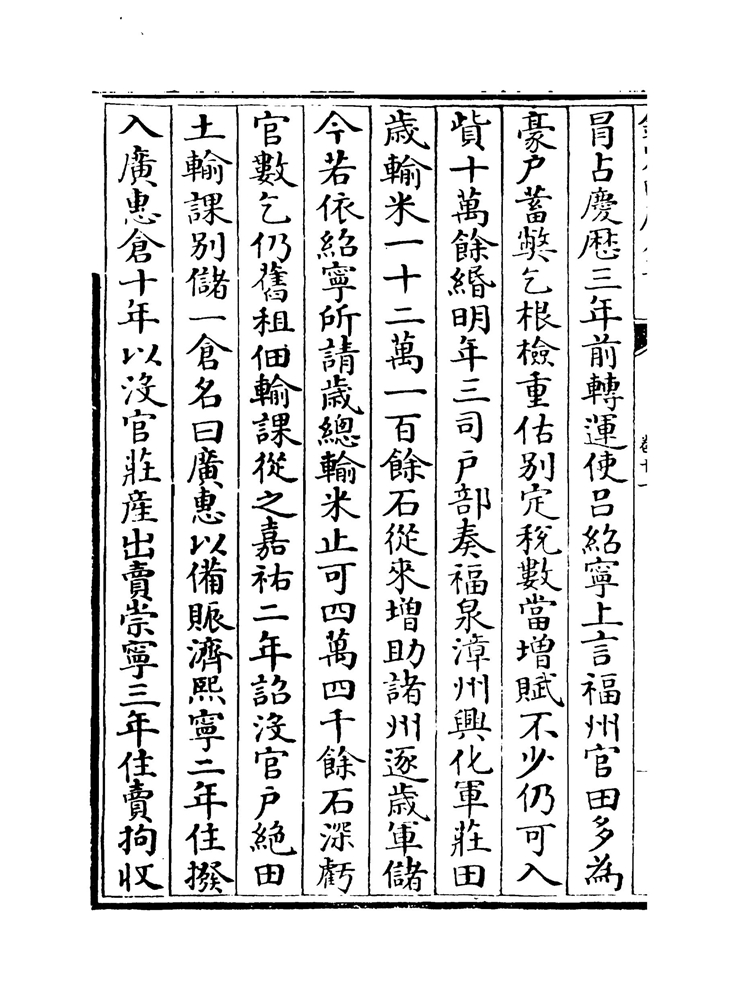 卷十一
冐占慶歴三年前轉運使吕紹寧上言福州官田多為
豪户蓄弊乞根檢重估别定税數當增賦不少仍可入
貲十萬餘緡明年三司户部奏福泉漳州興化軍莊田
歳輸米一十二萬一百餘石從來增助諸州逐歳軍儲
今若依紹寧所請歳總輸米止可四萬四千餘石深虧
官數乞仍舊租佃輸課從之嘉祐二年詔没官户絶田
土輸課别儲一倉名曰廣惠以備賑濟熙寧二年住撥
入廣惠倉十年以没官莊産出賣崇寧三年住賣拘收